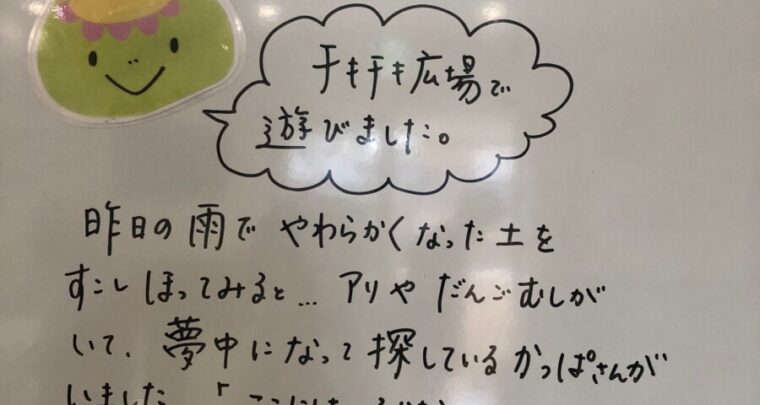 チキチキ広場で
遊びました。
昨日の雨で やわらかくなった土を
すこしほってみると... アリや だんごむしが
いて、夢中になって探しているかっぱさんが
いました。「